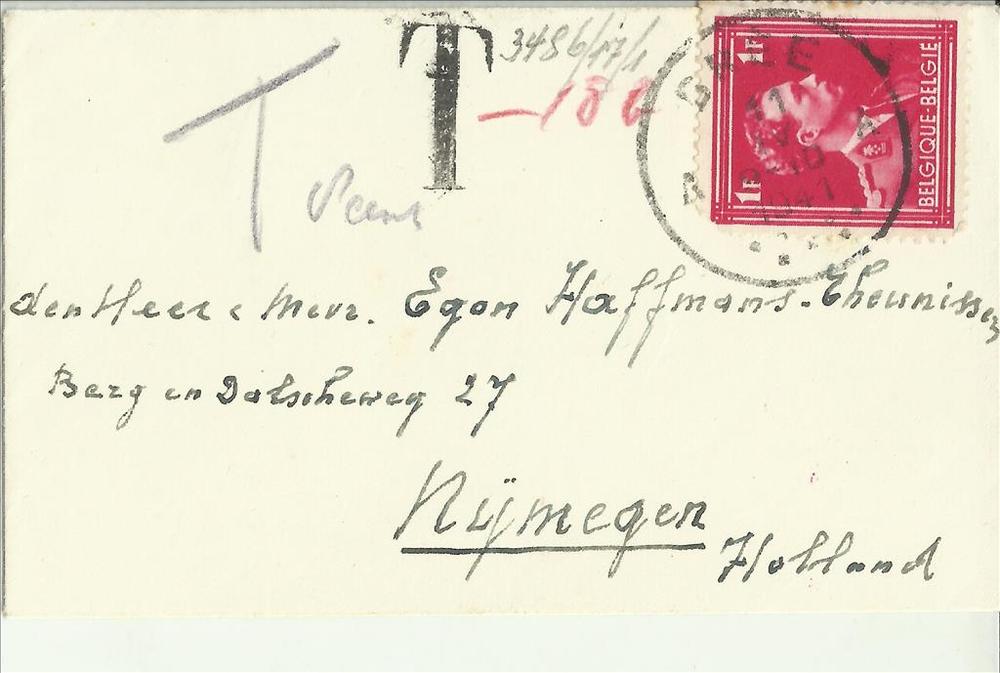 T
T
3486/17/1
1F
1F
BELGIQUE-BELGIË
A
A
1941
den Heer & Mevr. Egon Haffmans-Theunissen
Berg en Dalscheweg 27
Nijmegen
Holland